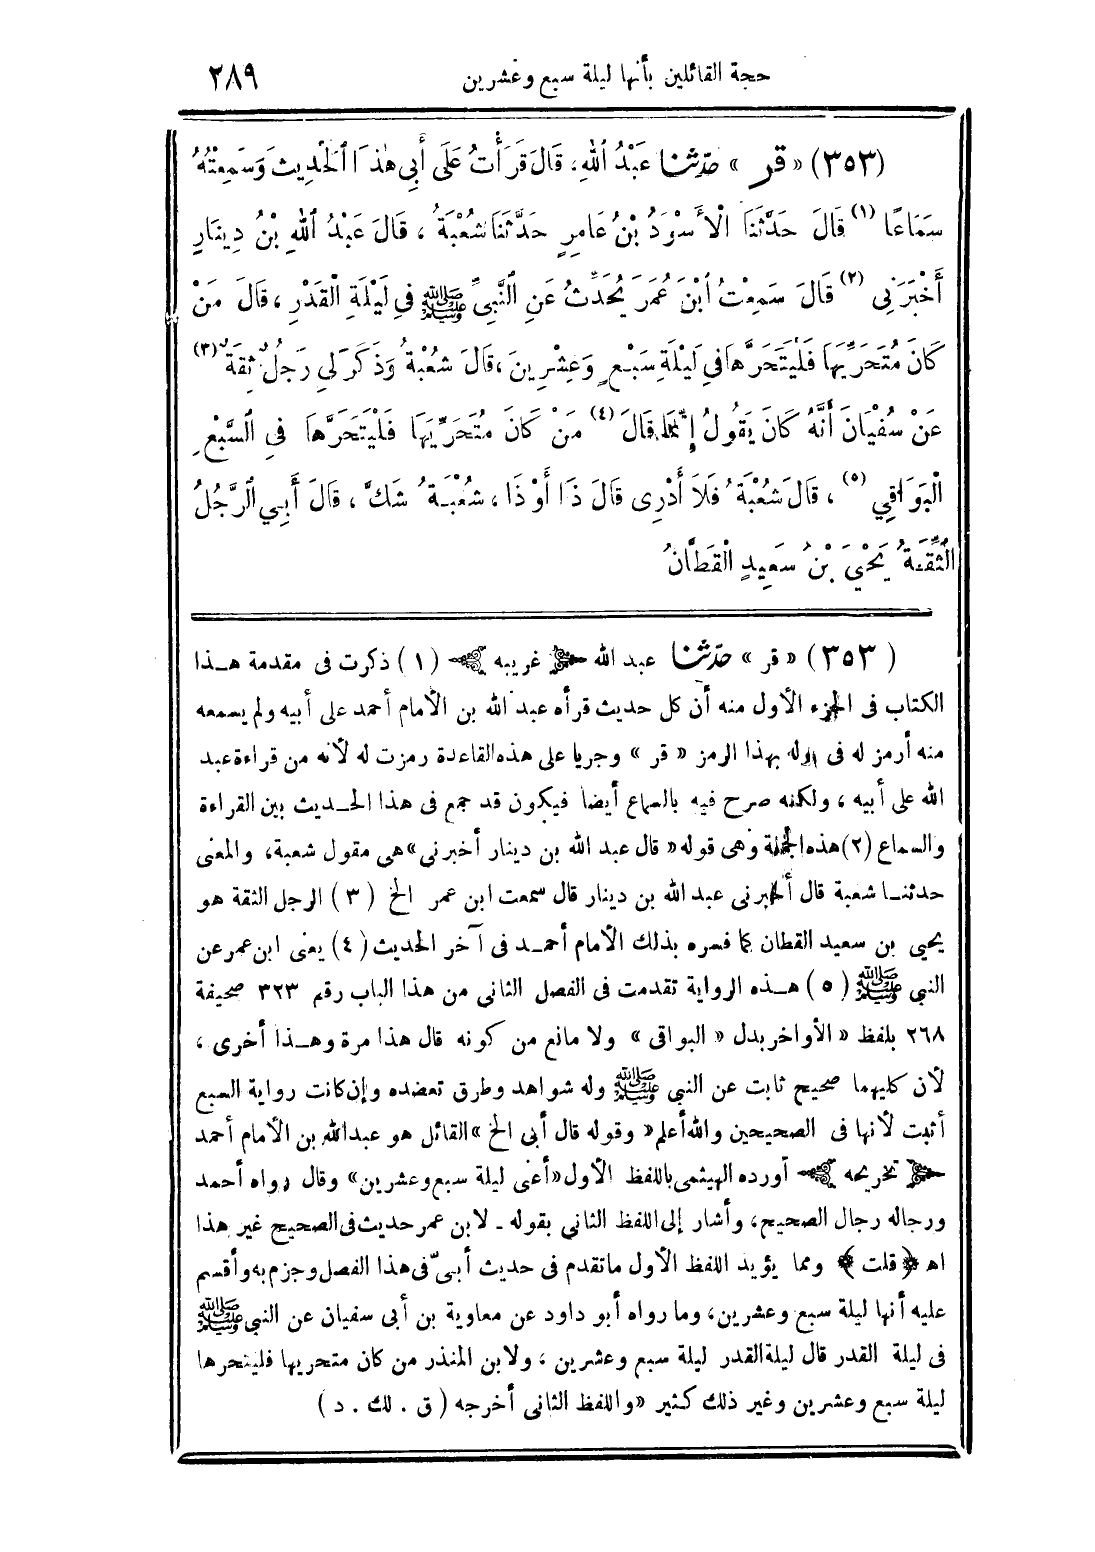 حجة القائلين بأنها ليلة سبع وعشرين ٢٨٩
(٣٥٣) « قر » حدّثنا عَبْدُ اللهِ، قَالَ قَرَأْتُ عَلَى أَبِى هٰذَا الْحَدِيثَ وَسَمِعْتُهُ
سَمَاعًا (١) قَالَ حَدَّثَنَا الْأَسْوَدُ بْنُ عَامِرٍ حَدَّثَنَا شُعْبَةُ، قَالَ عَبْدُ اللهِ بْنُ دِينَارٍ
أَخْبَرَنِى (٢) قَالَ سَمِعْتُ ابْنَ عُمَرَ يُحَدِّثُ عَنِ النَّبِىِّ ﷺ فِى لَيْلَةِ الْقَدْرِ، قَالَ مَنْ
كَانَ مُتَحَرِّيَهَا فَلْيَتَحَرَّهَا فِى لَيْلَةِ سَبْعٍ وَعِشْرِينَ، قَالَ شُعْبَةُ وَذَكَرَ لِى رَجُلٌ ثِقَةٌ (٣)
عَنْ سُفْيَانَ أَنَّهُ كَانَ يَقُولُ إِنَّمَا قَالَ (٤) مَنْ كَانَ مُتَحَرِّيَهَا فَلْيَتَحَرَّهَا فِى السَّبْعِ
الْبَوَاقِى (٥)، قَالَ شُعْبَةُ فَلَا أَدْرِى قَالَ ذَا أَوْ ذَا، شُعْبَةُ شَكَّ، قَالَ أَبِى الرَّجُلُ
الثِّقَةُ يَحْيَى بْنُ سَعِيدٍ الْقَطَّانُ
(٣٥٣) « قر » حدّثنا عبد الله ﴿ غريبه ﴾ (١) ذكرت فى مقدمة هـذا
الكتاب فى الجزء الأول منه أن كل حديث قرأه عبد الله بن الأمام أحمد على أبيه ولم يسمعه
منه أرمز له فى اوله بهذا الرمز « قر » وجريا على هذه القاعدة رمزت له لأنه من قراءة عبد
الله على أبيه، ولكنه صرح فيه بالسماع أيضا فيكون قد جمع فى هذا الحـديث بين القراءة
والسماع (٢) هذه الجملة وهى قوله « قال عبد الله بن دينار أخبرنى » هى مقول شعبة، والمعنى
حدثنـا شعبة قال أخبرنى عبد الله بن دينار قال سمعت ابن عمر الخ (٣) الرجل الثقة هو
يحيى بن سعيد القطان كما فسره بذلك الأمام أحمـد فى آخر الحديث (٤) يعنى ابن عمر عن
النبى ﷺ (٥) هـذه الرواية تقدمت فى الفصل الثانى من هذا الباب رقم ٣٢٣ صحيفة
٢٦٨ بلفظ « الأواخر بدل « البواقى » ولا مانع من كونه قال هذا مرة وهـذا أخرى،
لأن كليهما صحيح ثابت عن النبى ﷺ وله شواهد وطرق تعضده وإن كانت رواية السبع
أثبت لأنها فى الصحيحين والله أعلم « وقوله قال أبى الخ » القائل هو عبد الله بن الأمام أحمد
﴿ تخريجه ﴾ أورده الهيثمى باللفظ الأول « أعنى ليلة سبع وعشرين » وقال رواه أحمد
ورجاله رجال الصحيح، وأشار إلى اللفظ الثانى بقوله ـ لابن عمر حديث فى الصحيح غير هذا
اهـ ﴿ قلت ﴾ ومما يؤيد اللفظ الأول ما تقدم فى حديث أبىّ فى هذا الفصل وجزم به وأقسم
عليه أنها ليلة سبع وعشرين، وما رواه أبو داود عن معاوية بن أبى سفيان عن النبى ﷺ
فى ليلة القدر قال ليلة القدر ليلة سبع وعشرين، ولابن المنذر من كان متحريها فليتحرها
ليلة سبع وعشرين وغير ذلك كثير « واللفظ الثانى أخرجه (ق . لك . د)